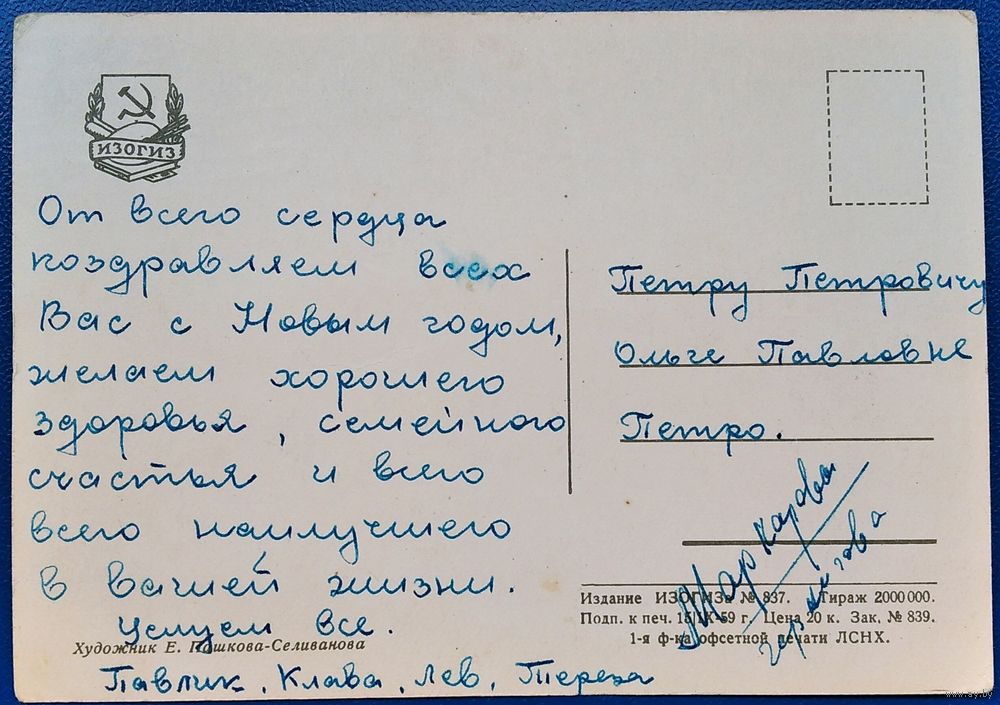 ИЗОГИЗ
От всего сердца
поздравляем всех
Вас с Новым годом,
желаем хорошего
здоровья, семейного
счастья и всего
всего наилучшего
в вашей жизни.
Целуем все.
Павлик, Клава, Лев, Тереза
Художник Е. Пошкова-Селиванова
Петру Петровичу
Ольге Павловне
Петро.
Маркарова
Издание ИЗОГИЗа № 837. Тираж 2000000.
Подп. к печ. 15/IX-59 г. Цена 20 к. Зак. № 839.
1-я ф-ка офсетной печати ЛСНХ.
www.ay.by